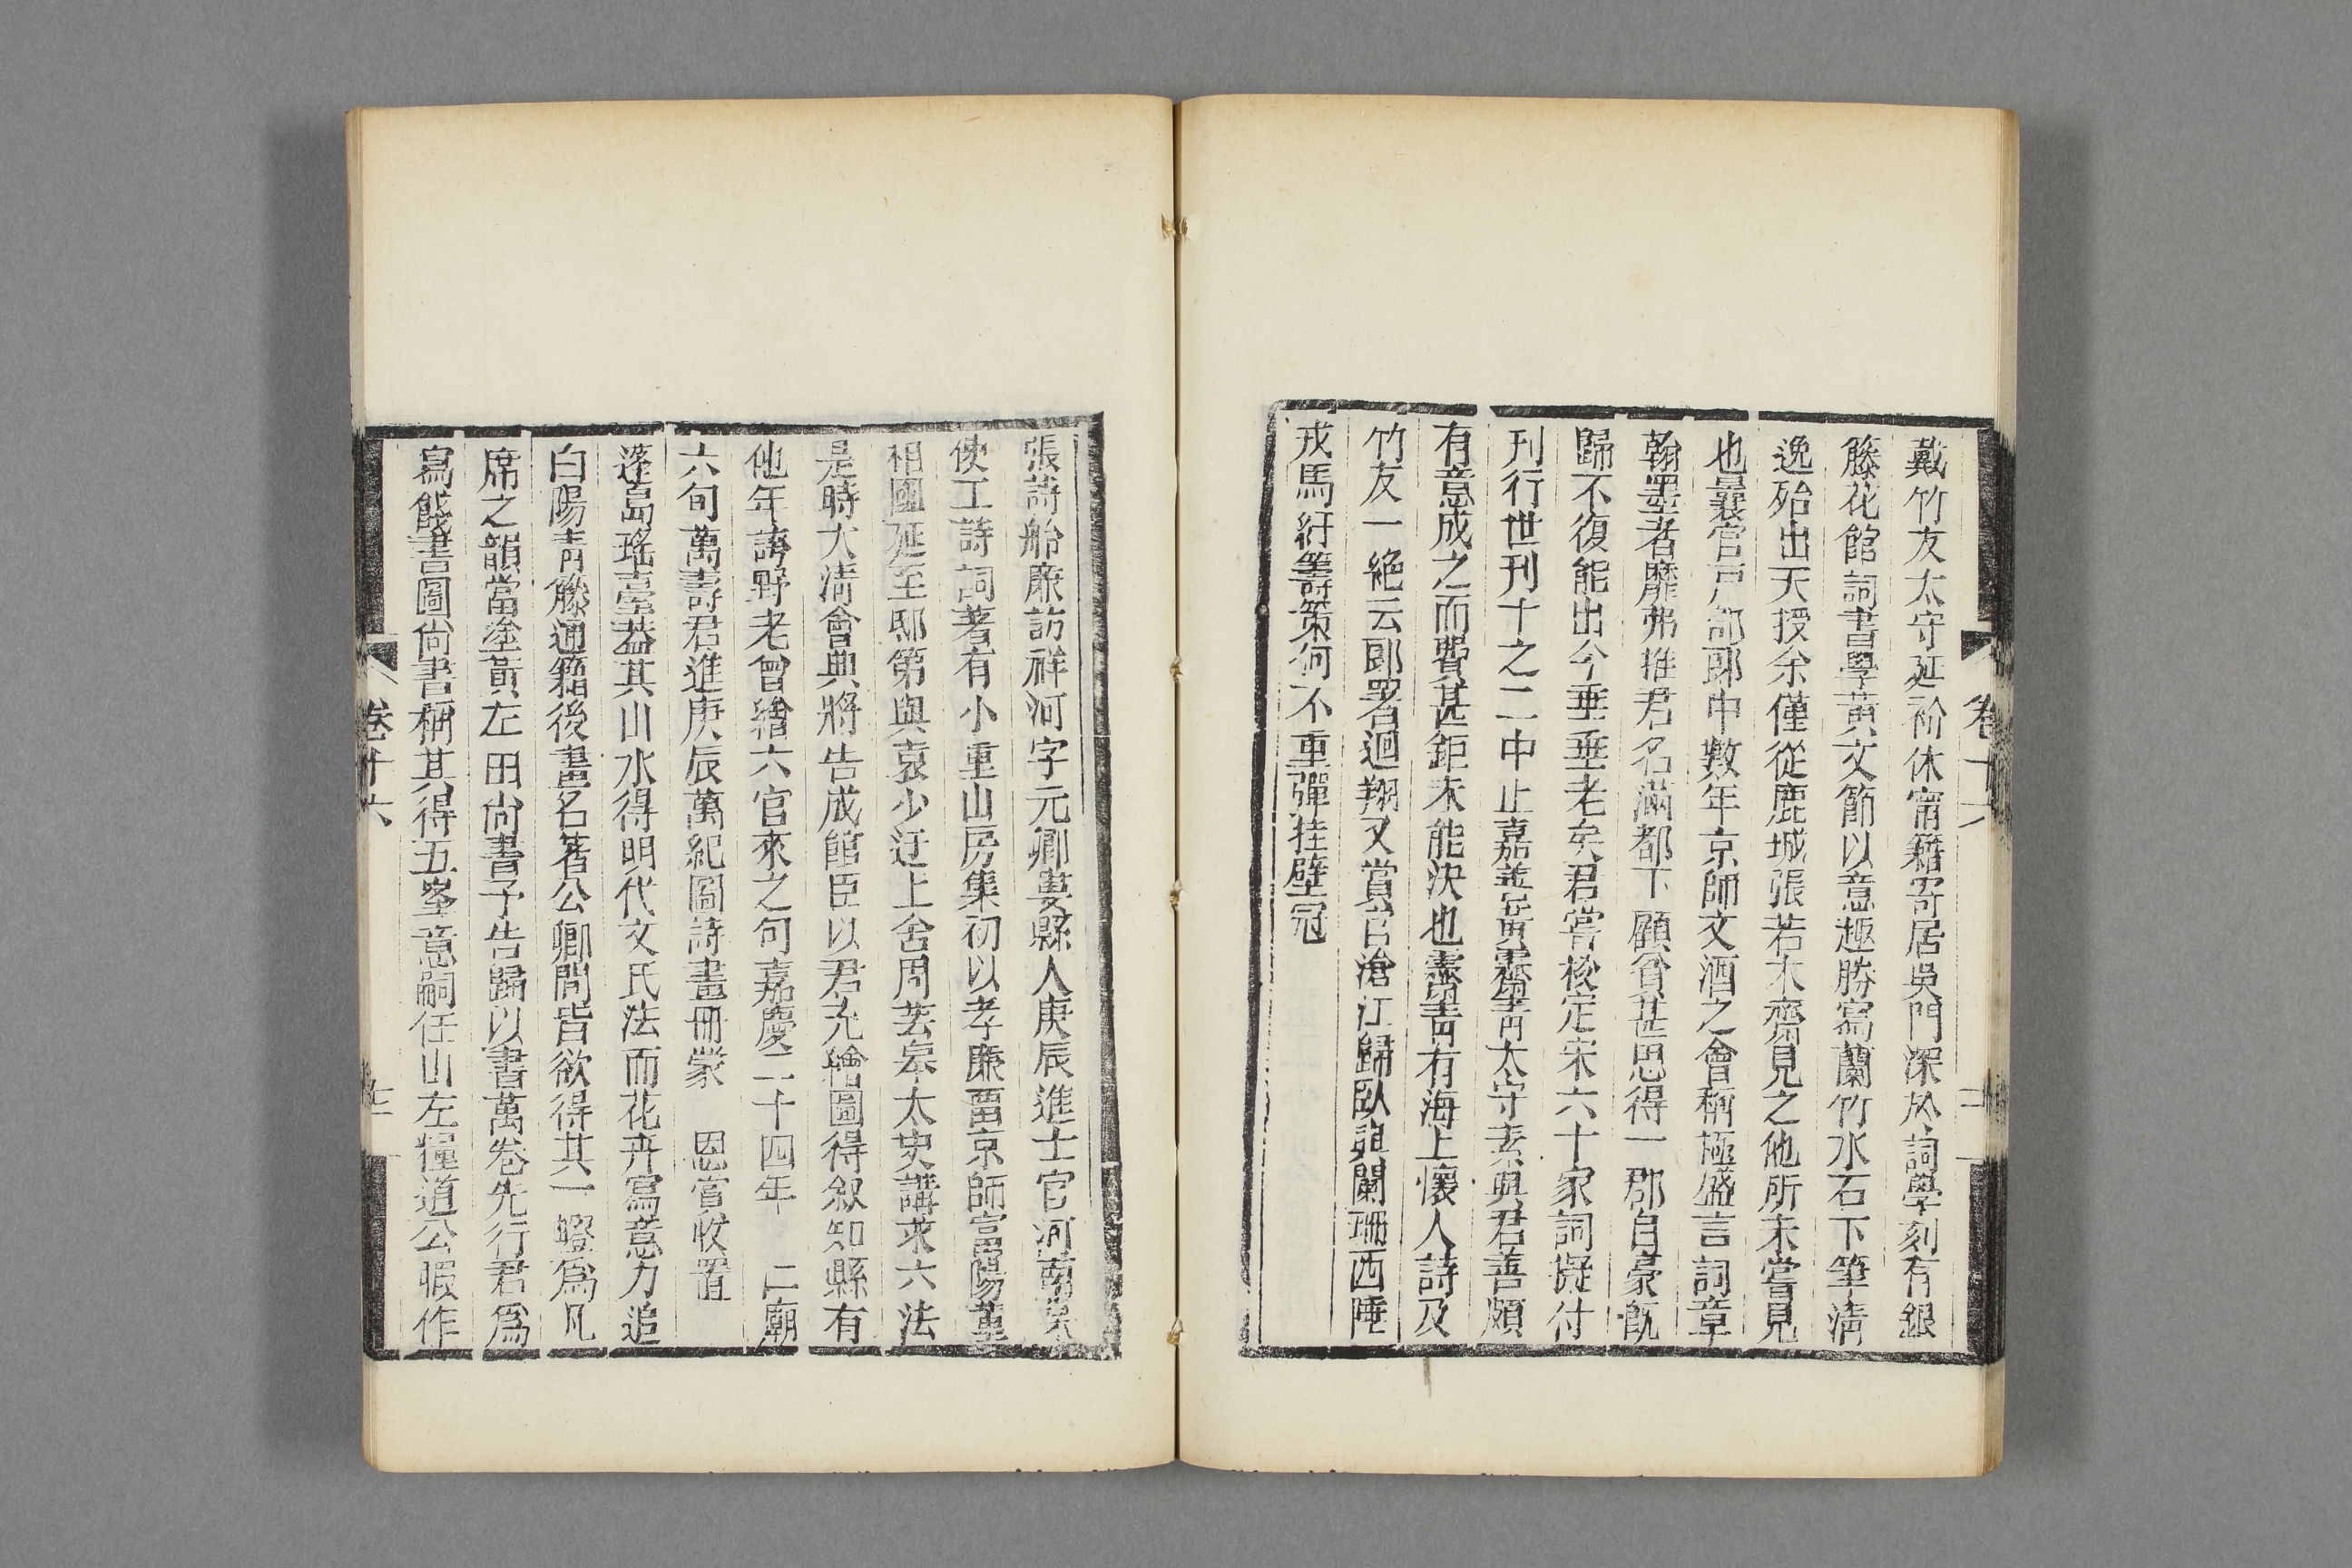 戴竹友太守延祄休甯籍寄居吳門深於詞學刻有銀
籐花館詞書學黃文節以意趣勝寫蘭竹水石下筆淸
逸殆出天授余僅從鹿城張若木齋見之他所未嘗見
也曩官戸部郎中數年京師文酒之會稱極盛言詞章
翰墨者靡弗推君名滿都下顧貧甚思得一郡自豪旣
歸不復能出今垂垂老矣君嘗校定宋六十家詞擬付
刊行世刊十之二中止嘉善黃霽靑太守素與君善頗
有意成之而費甚鉅未能決也霽靑有海上懷人詩及
竹友一絕云郎署迴翔又賞官滄江歸臥興闌珊西陲
戎馬紆籌策何不重彈挂壁冠
卷十六
二
張詩舲廉訪祥河字元卿婁縣人庚辰進士官河南
使工詩詞著有小重山房集初以孝廉畱京師富陽董
相國延至邸第與袁少迂上舍周芸皋太史講求六法
是時大淸會典將告成館臣以君充繪圖得叙知縣有
他年譸野老曾繪六官來之句嘉慶二十四年 仁廟
六旬萬壽君進庚辰萬紀圖詩畫冊蒙 恩賞收置
蓬島瑤臺葢其山水得明代文氏法而花卉寫意力追
白陽靑籐通籍後畫名著公卿間皆欲得其一蹬爲凡
席之韻當塗黃左田尙書予告歸以書萬卷先行君爲
寫餞書圖尙書稱其得五峯意嗣任山左糧道公暇作
卷十六